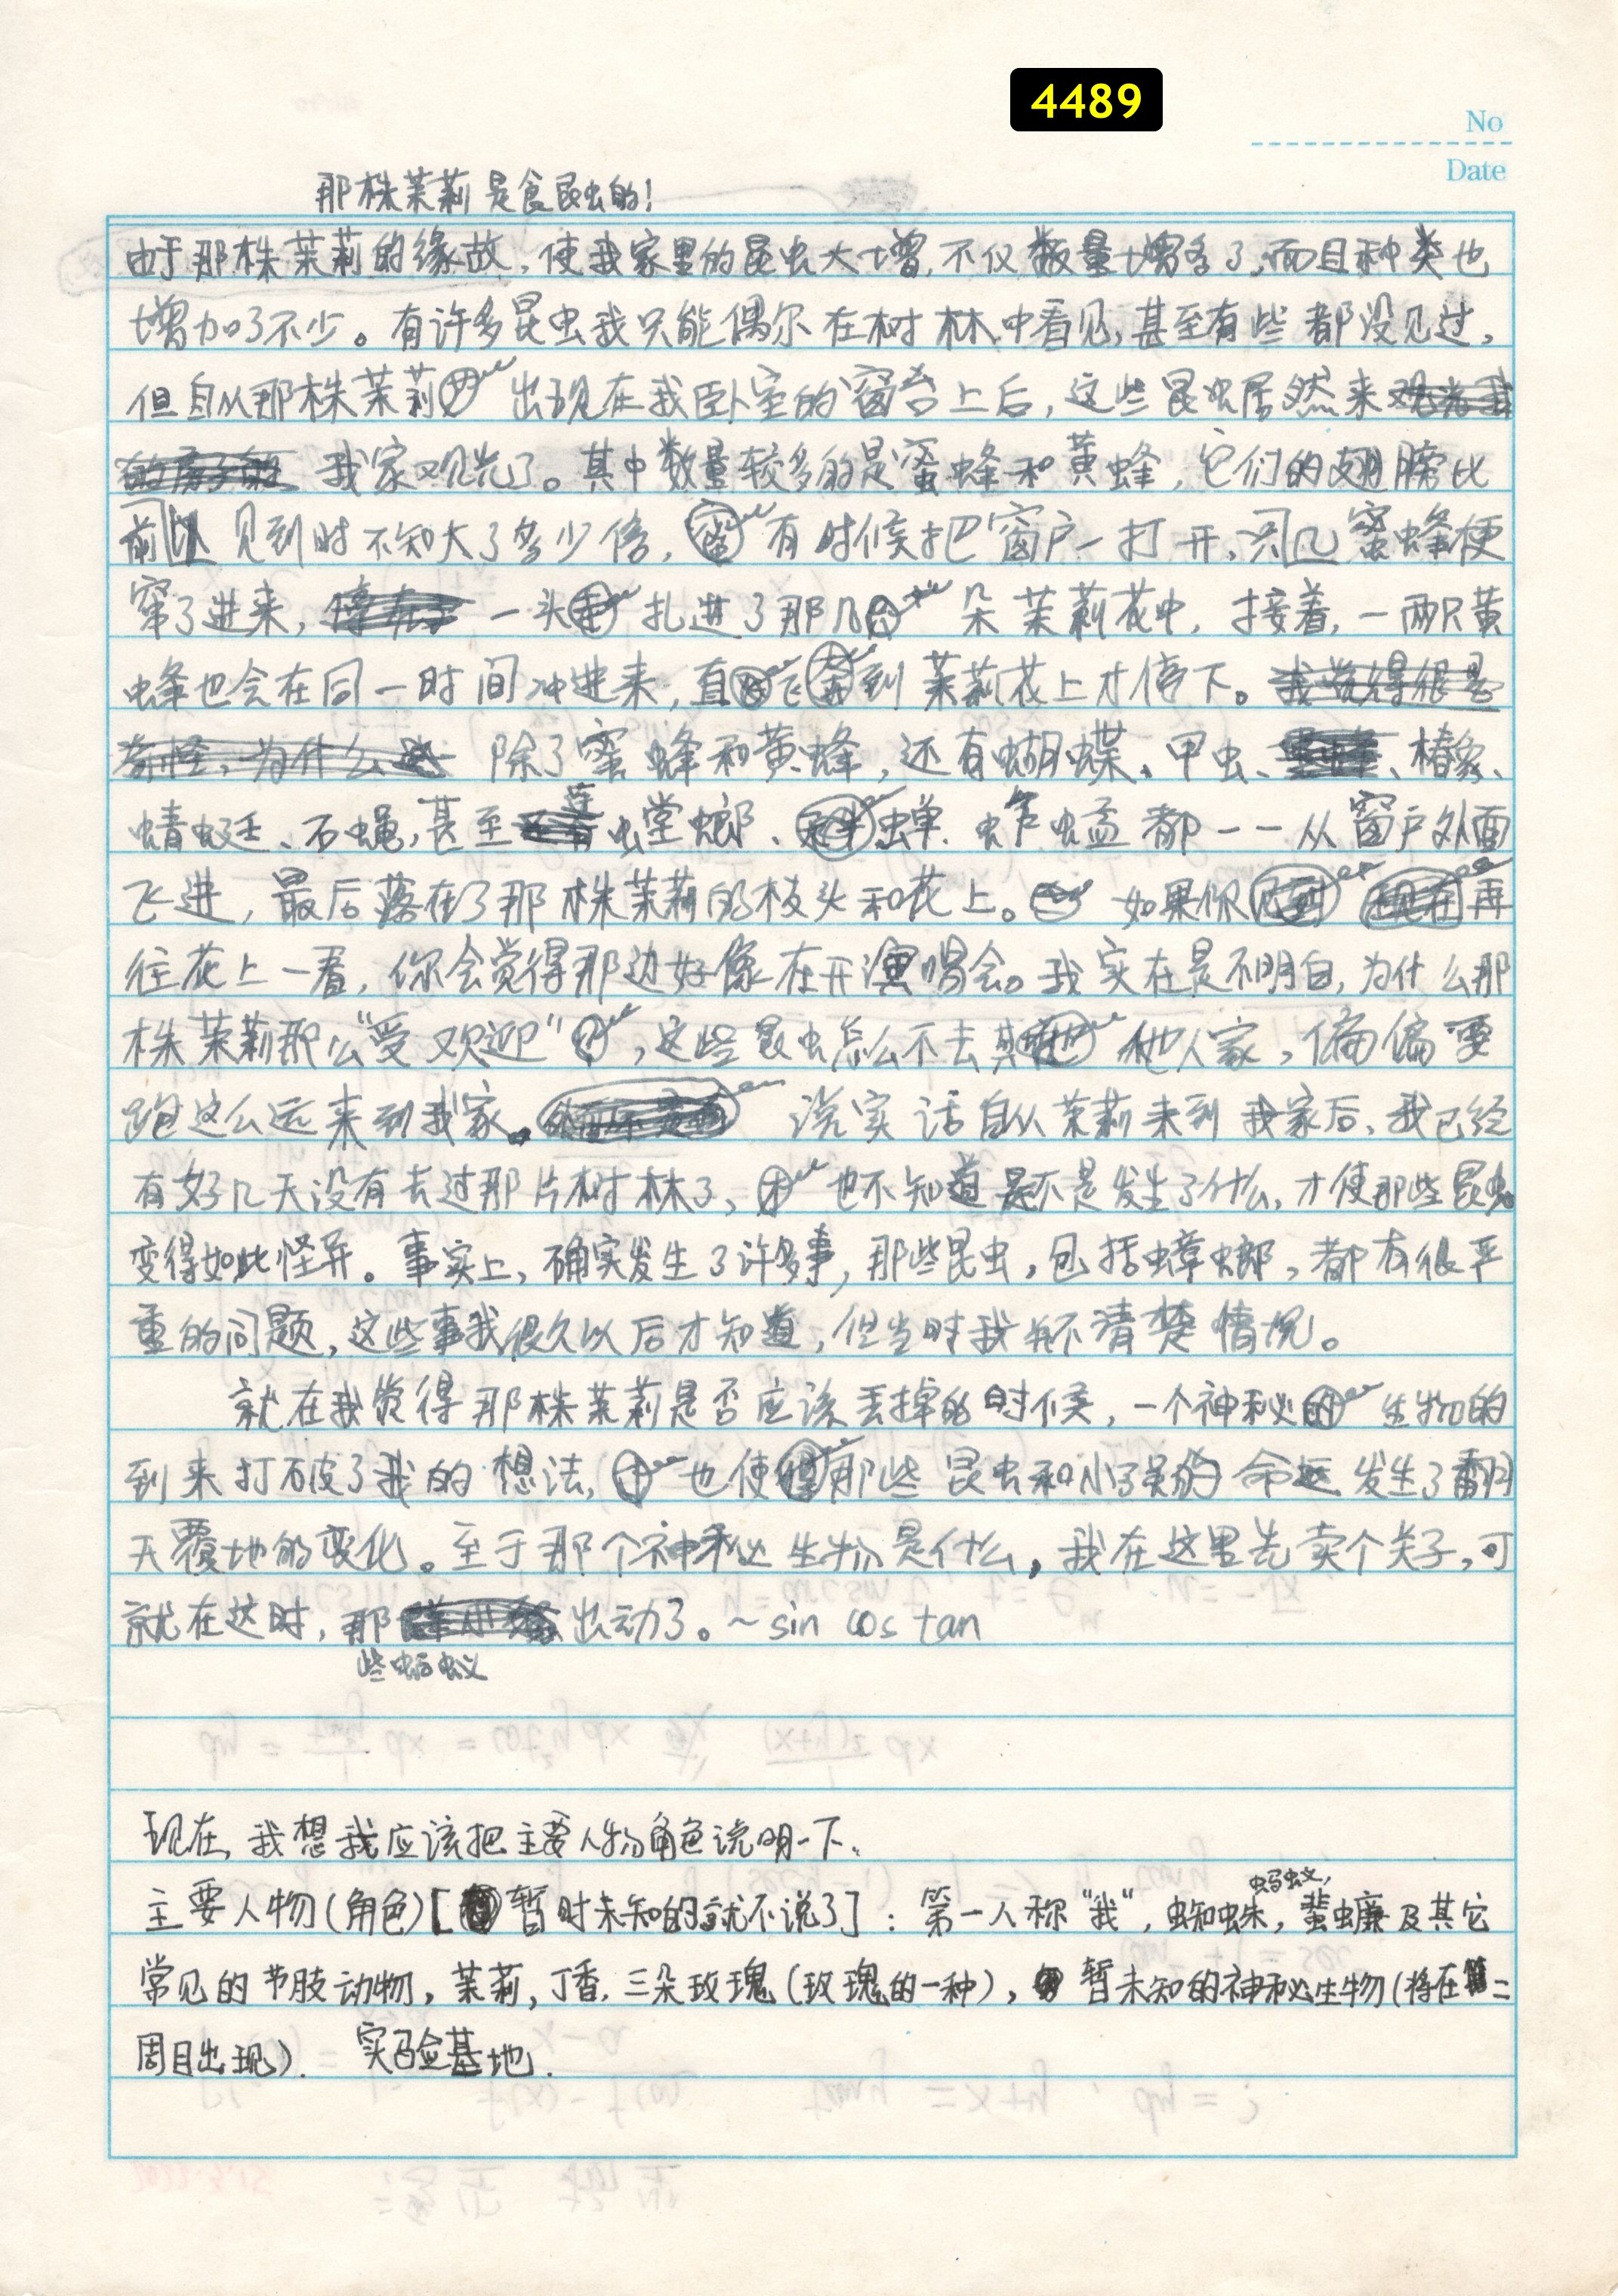 4489
No
Date
那株茉莉是食昆虫的!
由于那株茉莉的缘故,使我家里的昆虫大增,不仅数量增多了,而且种类也
增加了不少。有许多昆虫我只能偶尔在树林中看见,甚至有些都没见过,
但自从那株茉莉出现在我卧室的窗台上后,这些昆虫居然来
我家观光了。其中数量较多的是蜜蜂和黄蜂,它们的翅膀比
前见到时不知大了多少倍,有时候把窗户一打开,只几蜜蜂便
窜了进来,一头扎进了那几朵茉莉花中,接着,一两只黄
蜂也会在同一时间冲进来,直飞到茉莉花上才停下。
除了蜜蜂和黄蜂,还有蝴蝶、甲虫、、椿象、
蜻蜓、石蝇,甚至连螳螂、蝉、蚱蜢都一一从窗户外面
飞进,最后落在了那株茉莉的枝头和花上。如果你再
往花上一看,你会觉得那边好像在开演唱会。我实在是不明白,为什么那
株茉莉那么“受欢迎”,这些昆虫怎么不去其他人家,偏偏要
跑这么远来到我家。说实话自从茉莉来到我家后,我已经
有好几天没有去过那片树林了,也不知道是不是发生了什么,才使那些昆虫
变得如此怪异。事实上,确实发生了许多事,那些昆虫,包括蟑螂,都有很严
重的问题,这些事我很久以后才知道,但当时我并不清楚情况。
就在我觉得那株茉莉是否应该丢掉的时候,一个神秘生物的
到来打破了我的想法,也使那些昆虫和小了的命运发生了翻
天覆地的变化。至于那个神秘生物是什么,我在这里先卖个关子,可
就在这时,那些蚂蚁出动了。~sin cos tan
现在,我想我应该把主要人物角色说明一下.
主要人物(角色)[暂时未知的就不说了]:第一人称“我”,蜘蛛,蚂蚁,蜚蠊及其它
常见的节肢动物,茉莉,丁香,三朵玫瑰(玫瑰的一种),暂未知的神秘生物(将在第二
周目出现). 实验基地.